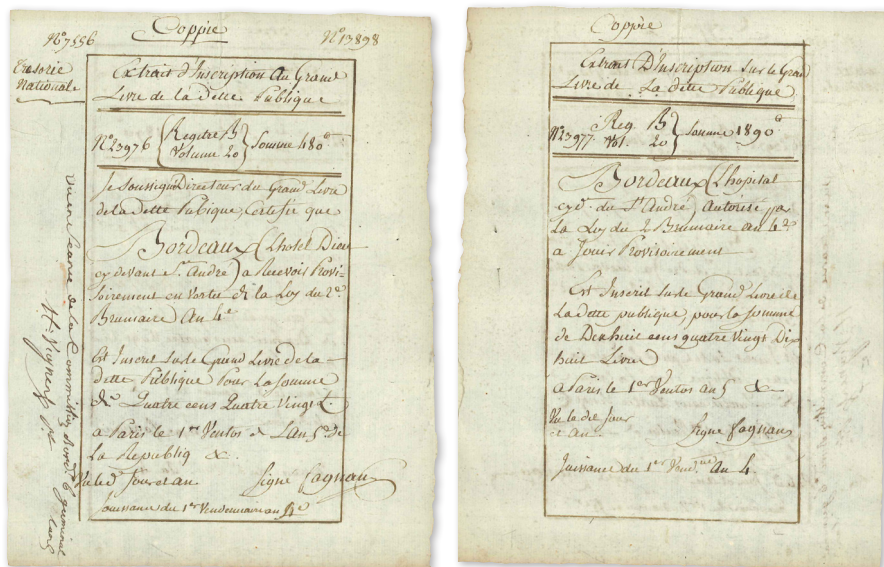 Coppie
N.º 7556
N.º 13898
Tresorie
Nationale
Extrait d'Inscription Au Grand
Livre de la dette Publique
N.º 23976 { Regitre B Volume 20 } Somme 480
Je Soussigné Directeur du Grand Livre
de la dette Publique, Certifie que
Bordeaux (Lhotel Dieu
cy devant St. André) a Recevoir Provi-
soirement en Vertu de la Loy du 2e
Brumaire Au 4e
Est Inscrit Sur le Grand Livre de la
dette Publique Pour La Somme
de Quatre cens Quatre Vingt
a Paris le 1er Ventos & L'an 5e de
La Republiq &.
Vu led. Jour et an Signe fagnan
Jouissance du 1er Vendemiaire au 4e
Vu en Seance de la Commission
6 germinal
Coppie
Extrait D'Inscription Sur le Grand
Livre de La dette Publique
N.º 23977 Reg. B Vol. 20 } Somme 1890
Bordeaux (Lhopital
cyd. du St André) Autorisé pa
La Loy du 2 Brumaire an 4e
a Jouir Provisoirement
Est Inscrit Sur le Grand Livre de
La dette publique, pour la Somme
de Dixhuit cens quatre Vingt Dix
huit Livre
a Paris le 1er Ventos an 5 &
Vu la dit Jour
et an. Signe fagnan
Jouissance du 1er Vend.re Au 4.